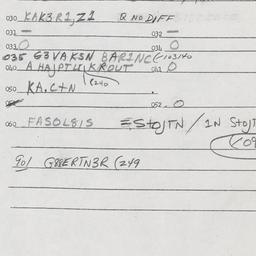 030 KAK3R1,Z1 Q NO DIFF
031 – 032 –
033 O 034 O
035 G3VAKSN BARINC (-103/40
040 A HAJPTLU KROUT 041 O
(240
050 KA.C+N
052. O
060 FASOL81S =STOJTN / IN STOJT
(09
901 GBBERTN3R (249